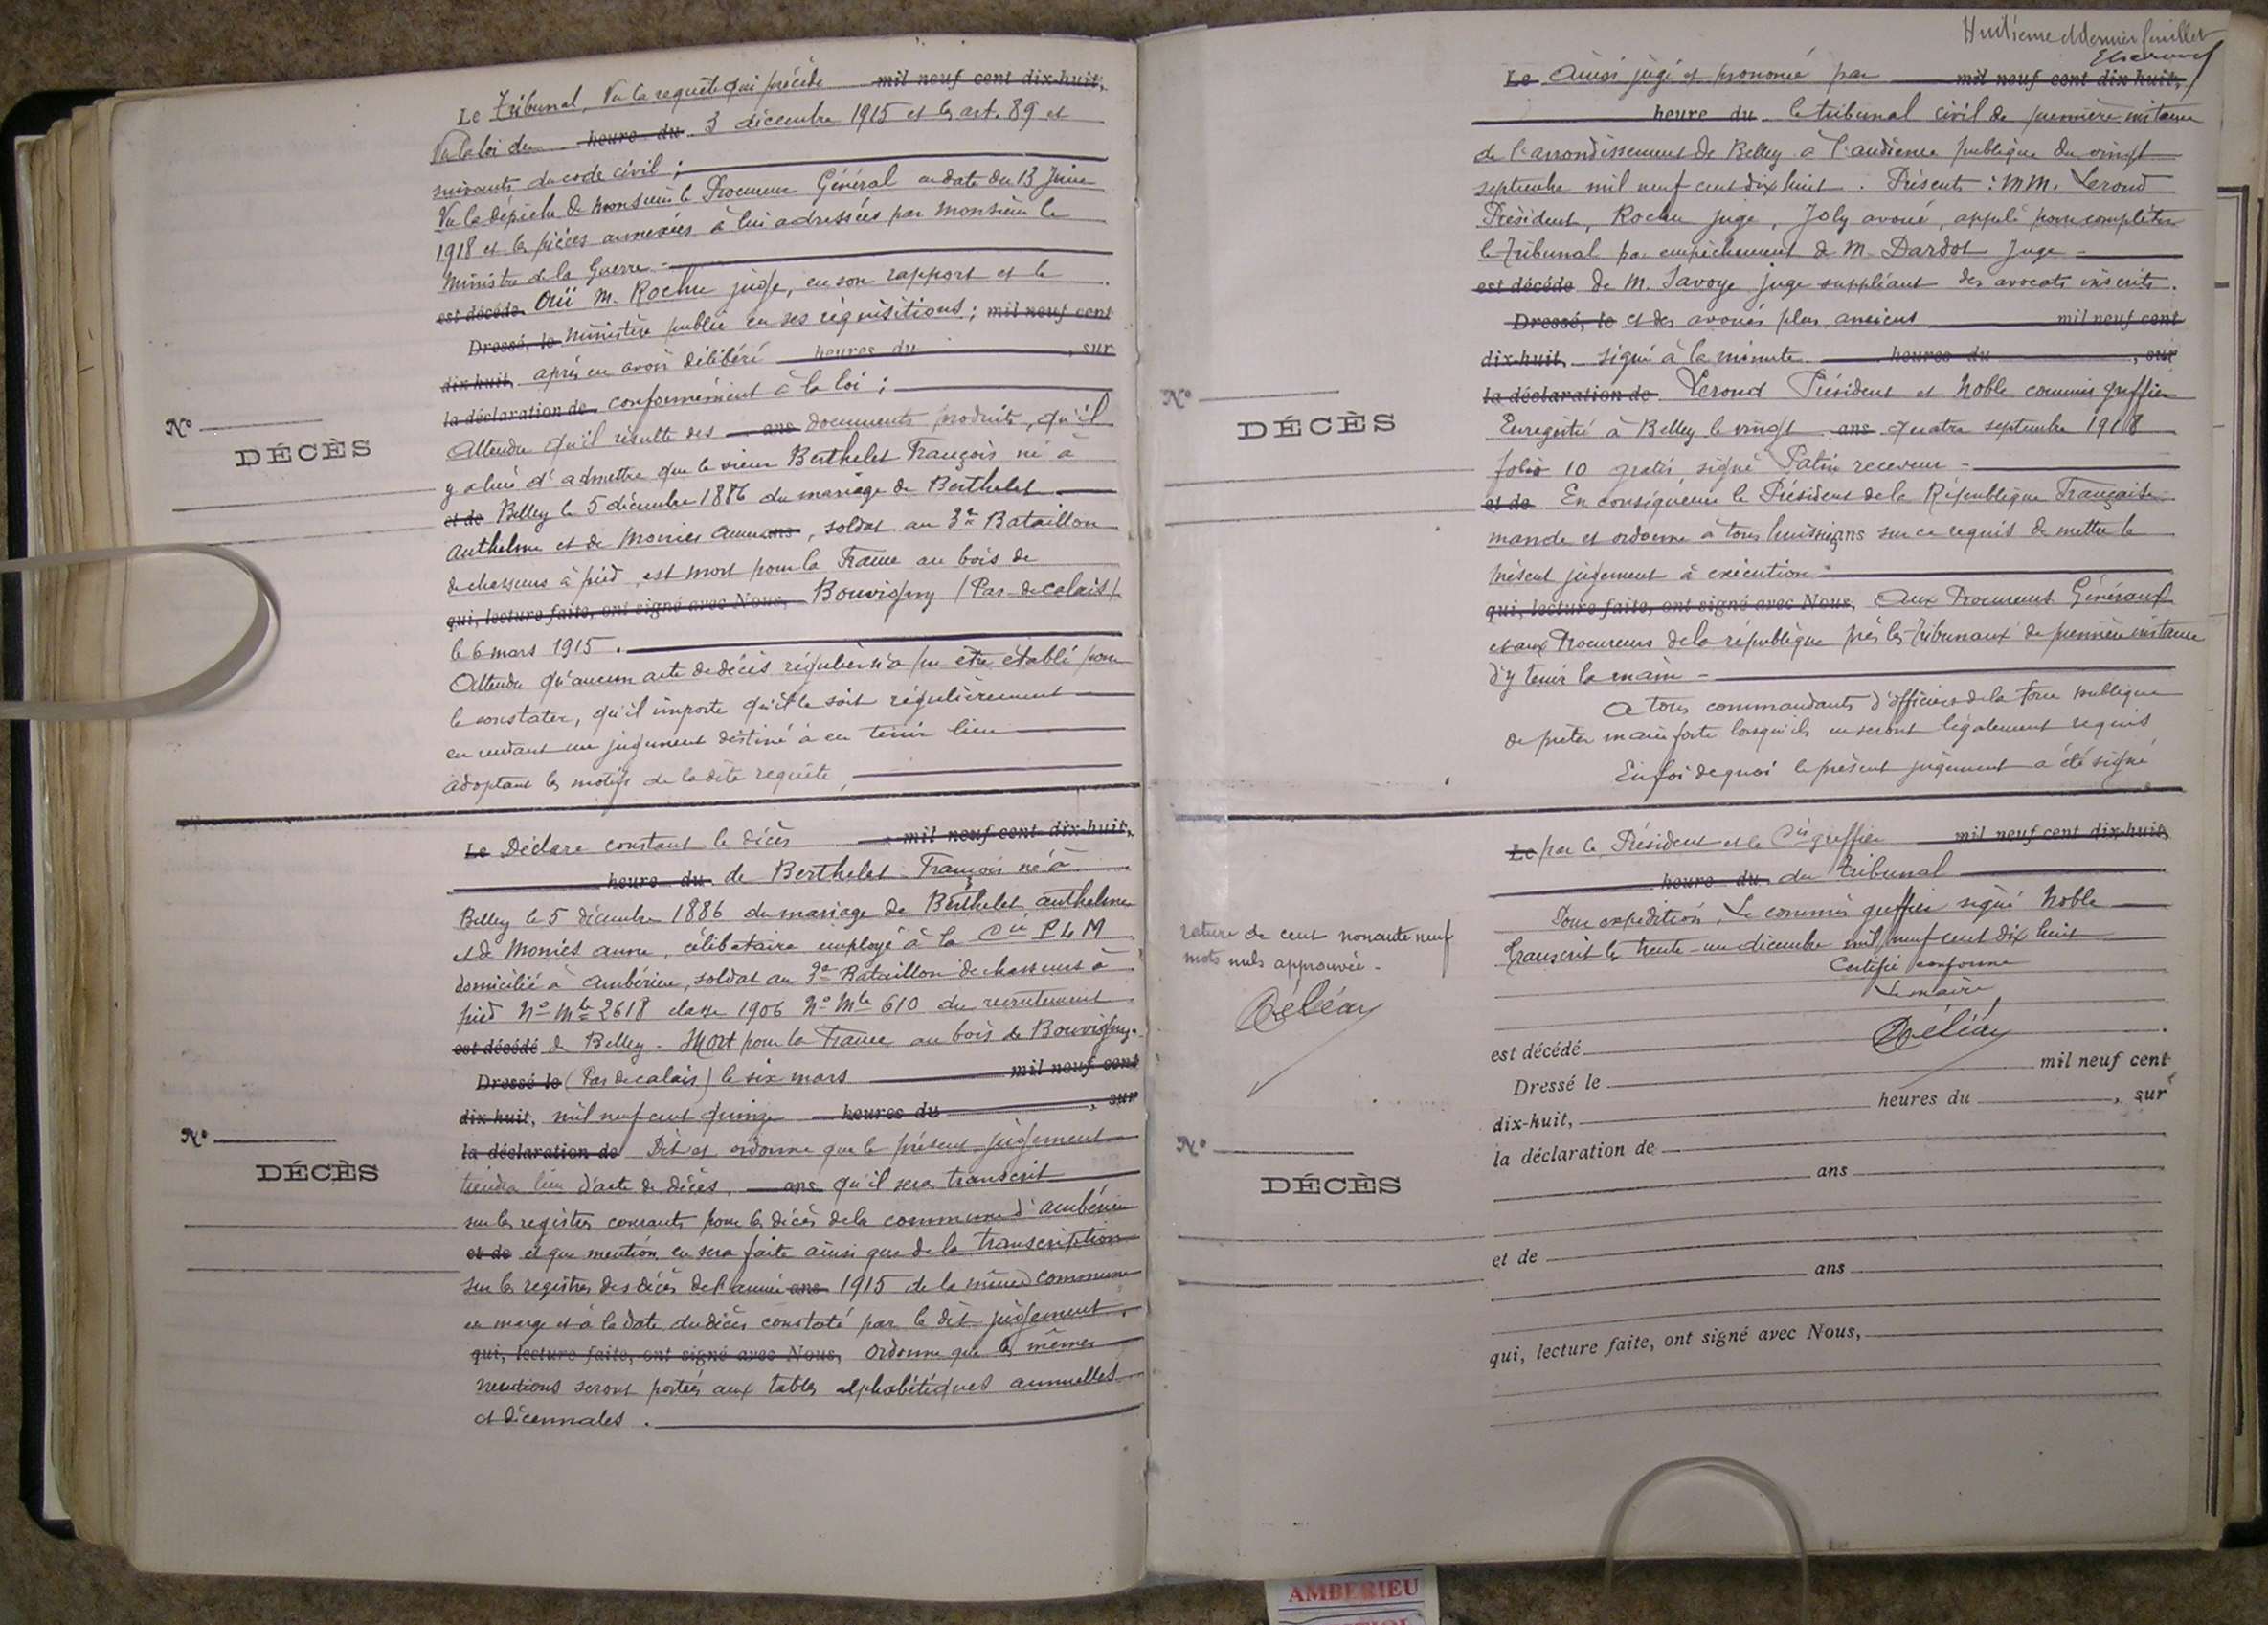 Le Tribunal, Vu la requête qui précède mil neuf cent dix-huit,
Vu la loi du heure du 3 décembre 1915 et les art. 89 et
suivants du code civil ;
Vu la dépêche de monsieur le Procureur Général en date du 13 Juin
1918 et les pièces annexées à lui adressées par monsieur le
Ministre de la Guerre -
est décédé Ouï M. Rochu juge, en son rapport et le
Dressé, le Ministère public en ses réquisitions ; mil neuf cent
dix-huit, après en avoir délibéré heures du , sur
la déclaration de conformément à la loi ;
Attendu qu'il résulte des ans documents produits, qu'il
N°
DÉCÈS
y a lieu d'admettre que le sieur Berthelet François né à
et de Belley le 5 décembre 1886 du mariage de Berthelet
Anthelme et de Monics Anne ans, soldat au 3e Bataillon
de chasseurs à pied, est mort pour la France au bois de
qui, lecture faite, ont signé avec Nous, Bouvigny (Pas-de-calais)
le 6 mars 1915.
Attendu qu'aucun acte de décès régulier n'a pu être établi pour
le constater, qu'il importe qu'il le soit régulièrement
en rendant un jugement destiné à en tenir lieu
adoptant les motifs de la dite requête,
Le Déclare constant le décès mil neuf cent dix-huit,
heure du de Berthelet François né à
Belley le 5 décembre 1886 du mariage de Berthelet anthelme
et de Monics anne, célibataire employé à la Cie P L M
domicilié à Ambérieu, soldat au 3e Bataillon de chasseurs à
pied No Mle 2618 classe 1906 No Mle 610 du recrutement
est décédé de Belley - Mort pour la France au bois de Bouvigny.
Dressé le (Pas de calais) le six mars mil neuf cent
dix-huit, mil neuf cent quinze heures du , sur
N°
DÉCÈS
la déclaration de Dit et ordonne que le présent jugement
tiendra lieu d'acte de décès, ans qu'il sera transcrit
sur les registres courants pour les décès de la commune d'Ambérieu
et de et que mention en sera faite ainsi que de la transcription
sur les registres des décès de l'année ans 1915 de la même commune
en marge et à la date du décès constaté par le dit jugement,
qui, lecture faite, ont signé avec Nous, ordonne que les mêmes
mentions seront portées aux tables alphabétiques annuelles
et décennales.
Huitième et dernier feuillet
Le Ainsi jugé et prononcé par mil neuf cent dix-huit,
heure du le tribunal civil de première instance
de l'arrondissement de Belley à l'audience publique du vingt
septembre mil neuf cent dix huit. Présents : MM. Verond
Président, Rochu juge, Joly avoué, appelé pour compléter
le tribunal par empêchement de M. Dardot Juge -
est décédé de M. Savoye juge suppléant des avocats inscrits.
Dressé, le et des avoués plus anciens mil neuf cent
dix-huit, signé à la minute heures du , sur
la déclaration de Verond Président et Noble commis greffier
N°
DÉCÈS
Enregistré à Belley le vingt ans quatre septembre 1918
folio 10 gratis signé Patin receveur -
et de En conséquence le Président de la République Française
mande et ordonne à tous huissiers ans sur ce requis de mettre le
présent jugement à exécution -
qui, lecture faite, ont signé avec Nous, Aux Procureurs Généraux
et aux Procureurs de la république près les tribunaux de première instance
d'y tenir la main -
A tous commandants d'officiers de la force publique
de prêter main forte lorsqu'ils en seront légalement requis
En foi de quoi le présent jugement a été signé
Le par le Président et le Cis greffier mil neuf cent dix-huit,
heure du du tribunal
Pour expédition, Le commis greffier signé Noble
Transcrit le trente un décembre mil neuf cent dix huit
Certifié conforme
Le maire
rature de cent nonante neuf
mots nuls approuvée -
est décédé
Dressé le mil neuf cent
dix-huit, heures du , sur
la déclaration de
N°
DÉCÈS
ans
et de
ans
qui, lecture faite, ont signé avec Nous,
AMBERIEU